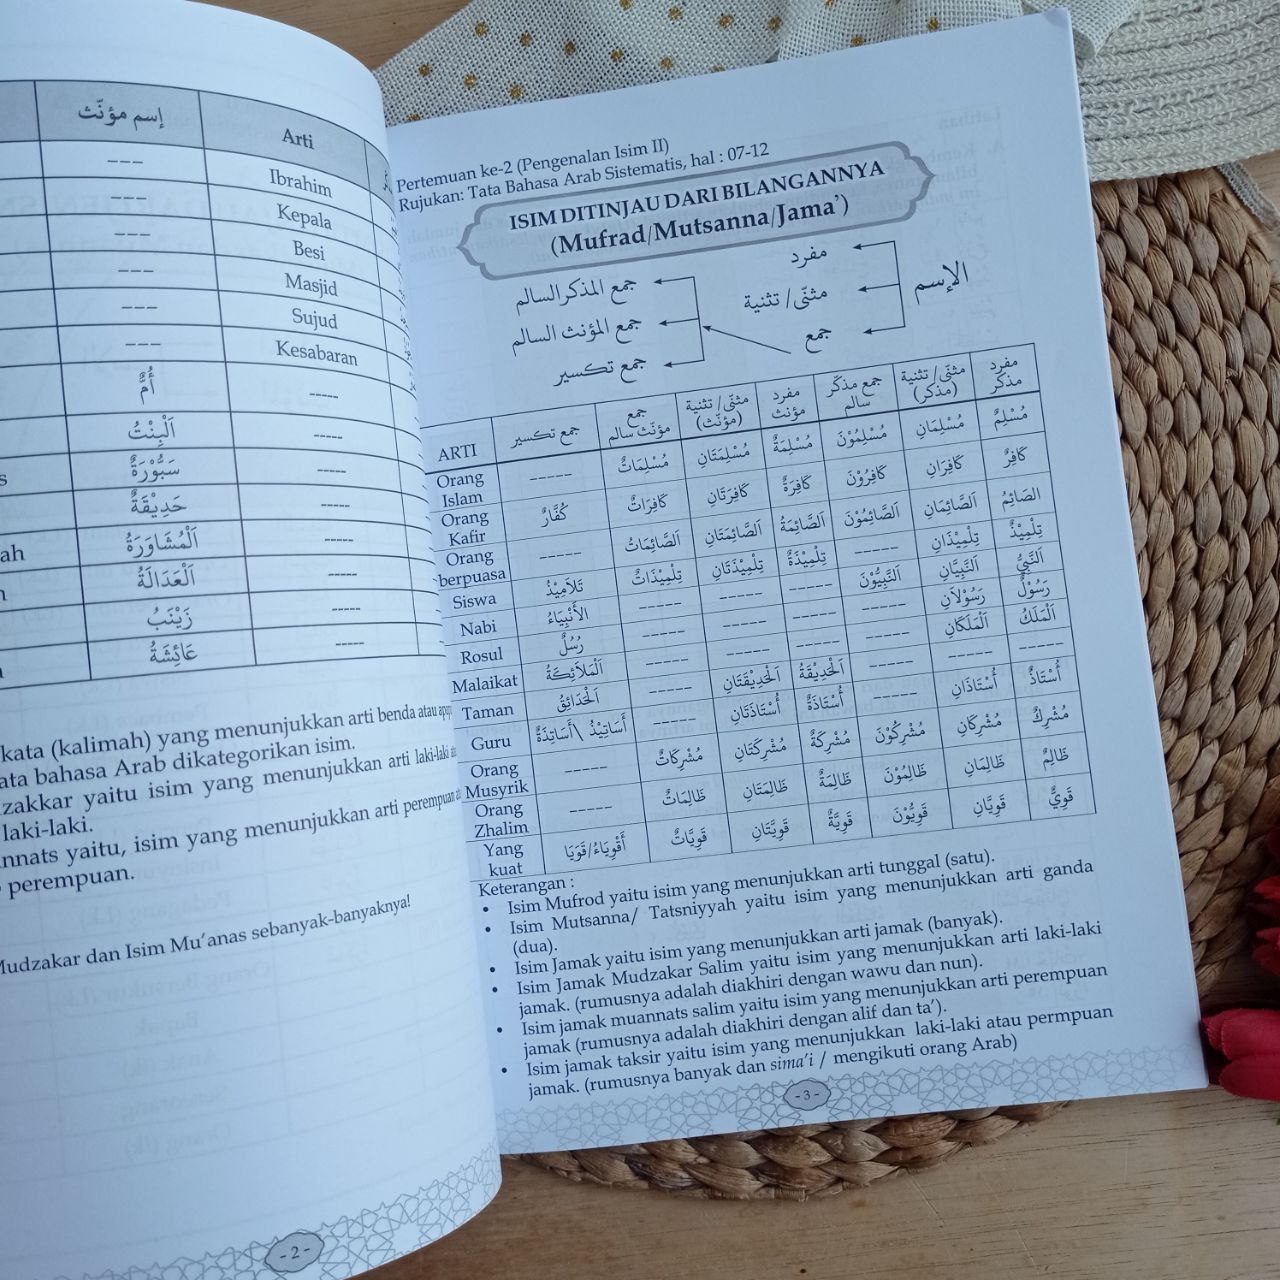 إسم مؤنّث Arti
--- Ibrahim
--- Kepala
--- Besi
--- Masjid
--- Sujud
--- Kesabaran
أُمٌّ -----
اَلْبِنْتُ -----
سَبُّوْرَةٌ -----
حَدِيْقَةٌ -----
اَلْمُشَاوَرَةُ -----
اَلْعَدَالَةُ -----
زَيْنَبُ -----
عَائِشَةُ -----
kata (kalimah) yang menunjukkan arti benda atau
ata bahasa Arab dikategorikan isim.
zakkar yaitu isim yang menunjukkan arti laki-laki
laki-laki.
annats yaitu, isim yang menunjukkan arti perempuan
perempuan.
Mudzakar dan Isim Mu'anas sebanyak-banyaknya!
- 2 -
Pertemuan ke-2 (Pengenalan Isim II)
Rujukan: Tata Bahasa Arab Sistematis, hal : 07-12
ISIM DITINJAU DARI BILANGANNYA
(Mufrad/Mutsanna/Jama')
الإسم
مفرد
مثنّى/ تثنية
جمع
جمع المذكر السالم
جمع المؤنث السالم
جمع تكسير
ARTI جمع تكسير جمع مؤنّث سالم مثنّى/ تثنية (مؤنّث) مفرد مؤنث جمع مذكّر سالم مثنّى/ تثنية (مذكر) مفرد مذكر
Orang Islam ----- مُسْلِمَاتٌ مُسْلِمَتَانِ مُسْلِمَةٌ مُسْلِمُوْنَ مُسْلِمَانِ مُسْلِمٌ
Orang Kafir كُفَّارٌ كَافِرَاتٌ كَافِرَتَانِ كَافِرَةٌ كَافِرُوْنَ كَافِرَانِ كَافِرٌ
Orang berpuasa ----- اَلصَّائِمَاتُ اَلصَّائِمَتَانِ اَلصَّائِمَةُ اَلصَّائِمُوْنَ اَلصَّائِمَانِ الصَّائِمُ
Siswa تَلَامِيْذُ تِلْمِيْذَاتٌ تِلْمِيْذَتَانِ تِلْمِيْذَةٌ ----- تِلْمِيْذَانِ تِلْمِيْذٌ
Nabi الأَنْبِيَاءُ ----- ----- ----- اَلنَّبِيُّوْنَ اَلنَّبِيَّانِ اَلنَّبِيُّ
Rosul رُسُلٌ ----- ----- ----- ----- رَسُوْلَانِ رَسُوْلٌ
Malaikat اَلْمَلَائِكَةُ ----- ----- ----- ----- اَلْمَلَكَانِ اَلْمَلَكُ
Taman اَلْحَدَائِقُ ----- اَلْحَدِيْقَتَانِ اَلْحَدِيْقَةُ ----- ----- -----
Guru أَسَاتِيْذُ \أَسَاتِذَةٌ ----- أُسْتَاذَتَانِ أُسْتَاذَةٌ ----- أُسْتَاذَانِ أُسْتَاذٌ
Orang Musyrik ----- مُشْرِكَاتٌ مُشْرِكَتَانِ مُشْرِكَةٌ مُشْرِكُوْنَ مُشْرِكَانِ مُشْرِكٌ
Orang Zhalim ----- ظَالِمَاتٌ ظَالِمَتَانِ ظَالِمَةٌ ظَالِمُوْنَ ظَالِمَانِ ظَالِمٌ
Yang kuat أَقْوِيَاءُ/قَوَيَا قَوِيَّاتٌ قَوِيَّتَانِ قَوِيَّةٌ قَوِيُّوْنَ قَوِيَّانِ قَوِيٌّ
Keterangan :
• Isim Mufrod yaitu isim yang menunjukkan arti tunggal (satu).
• Isim Mutsanna/ Tatsniyyah yaitu isim yang menunjukkan arti ganda
(dua).
• Isim Jamak yaitu isim yang menunjukkan arti jamak (banyak).
• Isim Jamak Mudzakar Salim yaitu isim yang menunjukkan arti laki-laki
jamak. (rumusnya adalah diakhiri dengan wawu dan nun).
• Isim jamak muannats salim yaitu isim yang menunjukkan arti perempuan
jamak (rumusnya adalah diakhiri dengan alif dan ta').
• Isim jamak taksir yaitu isim yang menunjukkan laki-laki atau permpuan
jamak. (rumusnya banyak dan sima'i / mengikuti orang Arab)
- 3 -